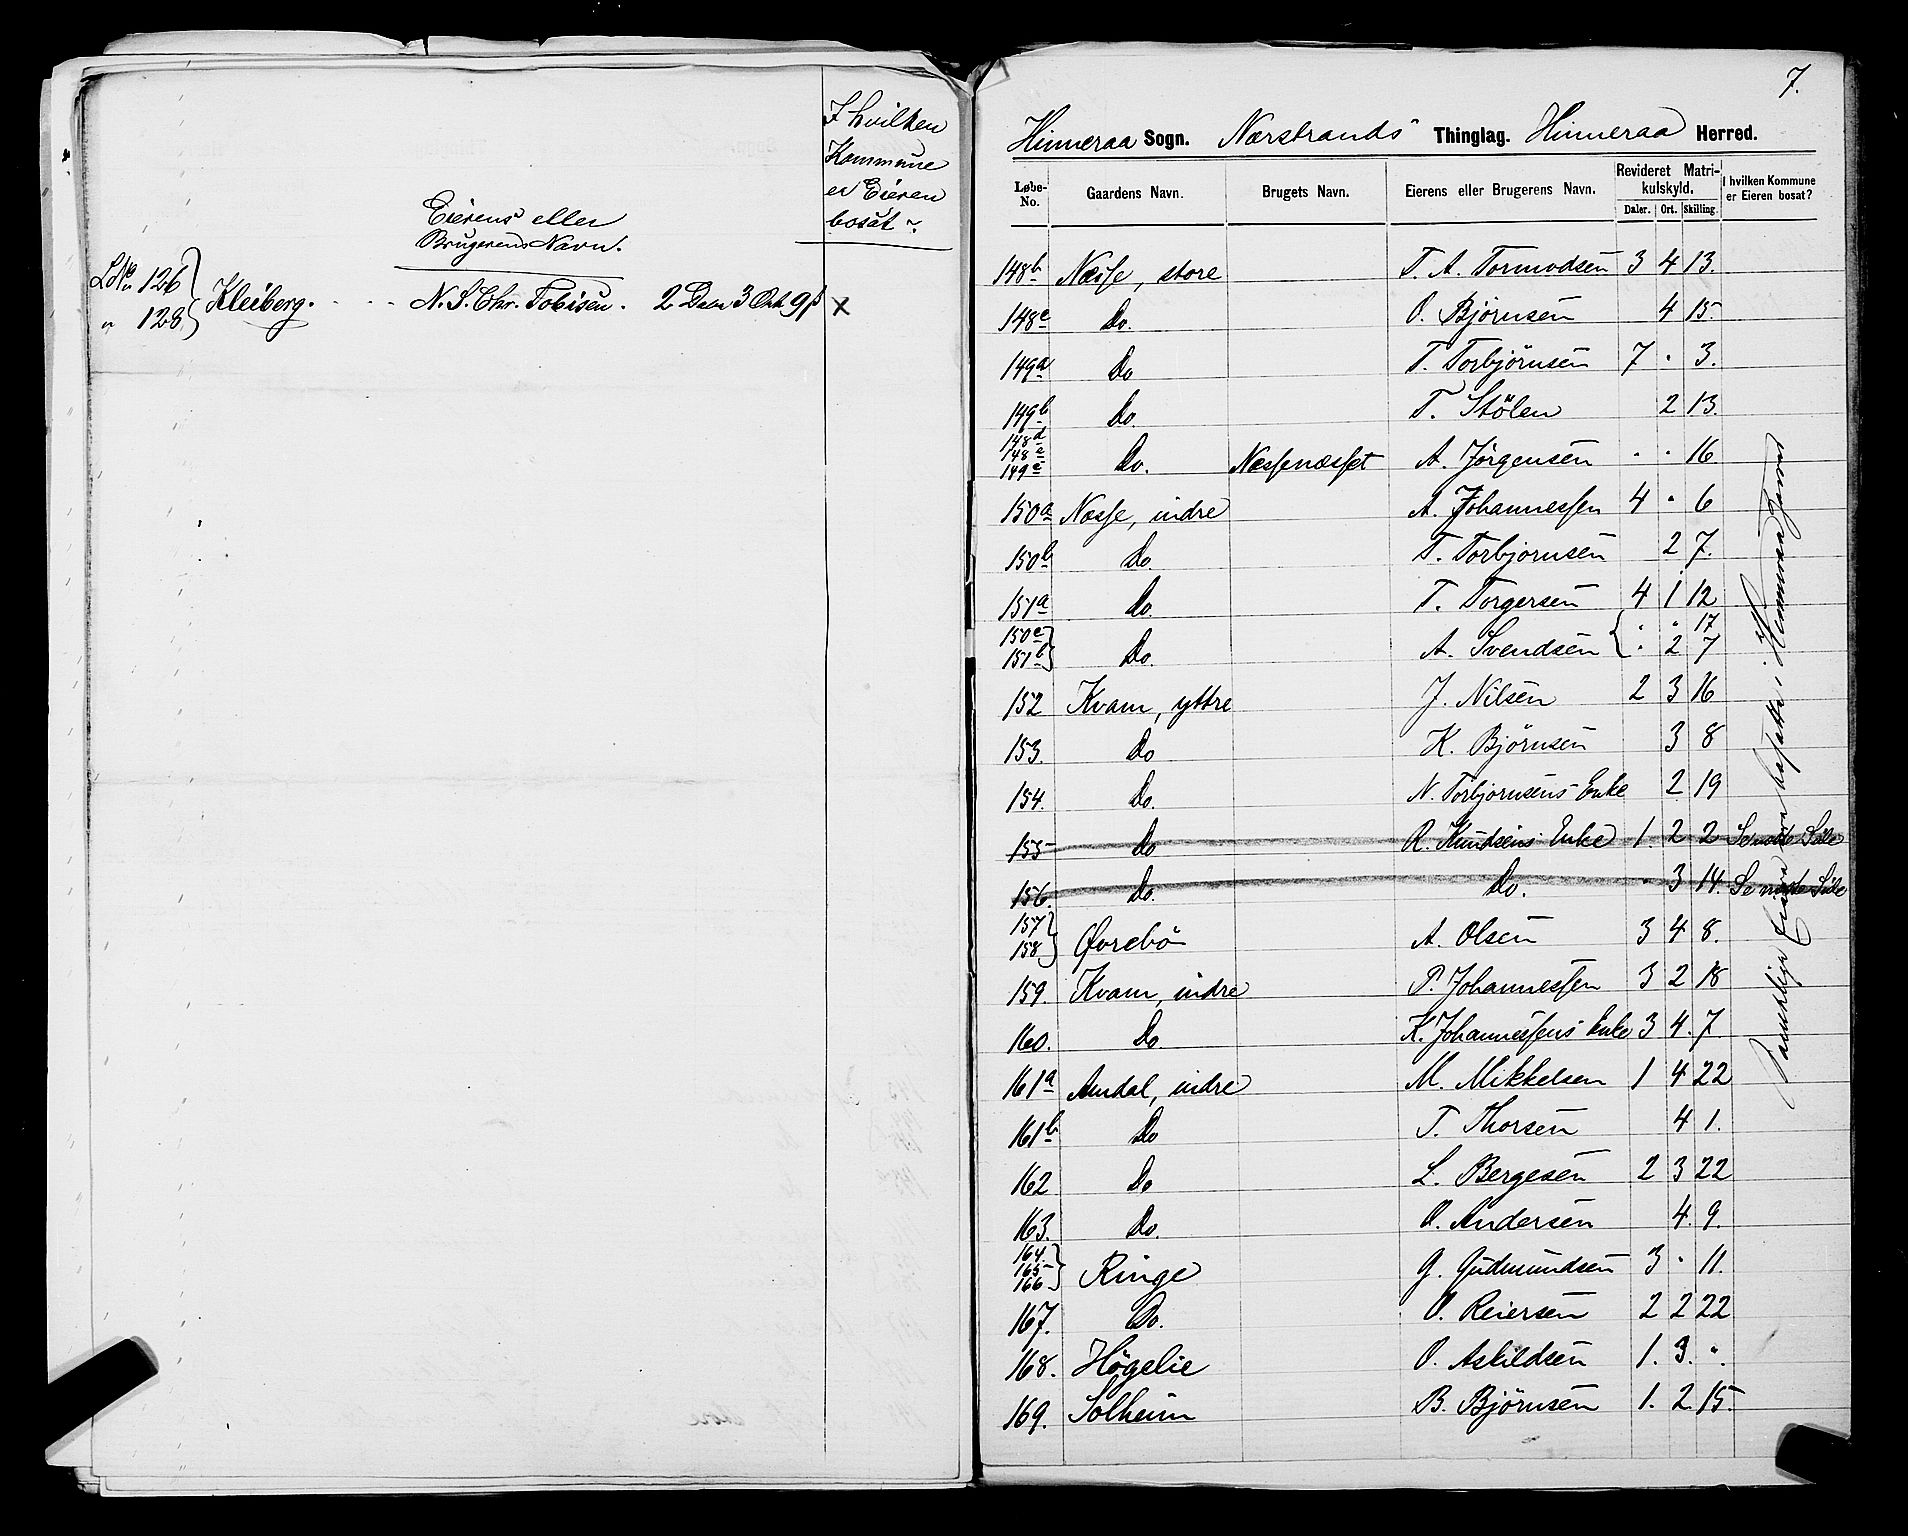 I hvilken
Kommune
er Eieren
bosat?
Eierens eller
Brugerens Navn.
LNo 126 } Kleiberg. - - - N. S. Chr. Tobisen. 2 Daler 3 Ort 9 ß x
" 128 }
7.
Hinneraa Sogn. Nærstrands Thinglag. Hinneraa Herred.
Løbe-No. Gaardens Navn. Brugets Navn. Eierens eller Brugerens Navn. Revideret Matrikulskyld. Daler. Ort. Skilling. I hvilken Kommune er Eieren bosat?
148b Næsse, store T. A. Tormodsen 3 4 13.
148c Do. O. Bjørnsen 4 15.
149a Do T. Torbjörnsen 7 " 3.
149b Do. T. Stölen 2 13.
148d
148e
149c Do. Næssenæsset A. Jörgensen " " 16
150a Næsse, indre A. Johannessen 4 " 6
150b Do. T. Torbjornsen 2 7.
151a Do. T. Torgersen 4 1 12
150c } Do. A. Svendsen { " " 17
151b } " 2 7
152 Kvam, yttre J. Nilsen 2 3 16
153. Do K. Björnsen 3 8
154. Do. N. Torbjornsens Enke 2 19
155 Do R. Knudsens Enke 1. 2 2 Se næste Side
156. Do. Do. " 3 14. Se næste Side
157 }
158 } Øvrebö A. Olsen 3 4 8.
159. Kvam, indre P. Johannessen 3 2 18
160. Do K. Johannessens Enke 3 4. 7
161a Amdal, indre M. Mikkelsen 1 4 22
161b Do T. Thorsen 4 1.
162 Do L. Bergesen 2 3 22
163. Do. O. Andersen 4. 9.
164.
165
166 } Ringe G. Gudmundsen 3 " 11.
167. Do. O. Reiersen 2 2 22
168. Högelie O. Askildsen 1. 3. "
169. Solheim B. Björnsen 1. 2 15.
Samtlige Eiere ere bosatte i Hinneraa